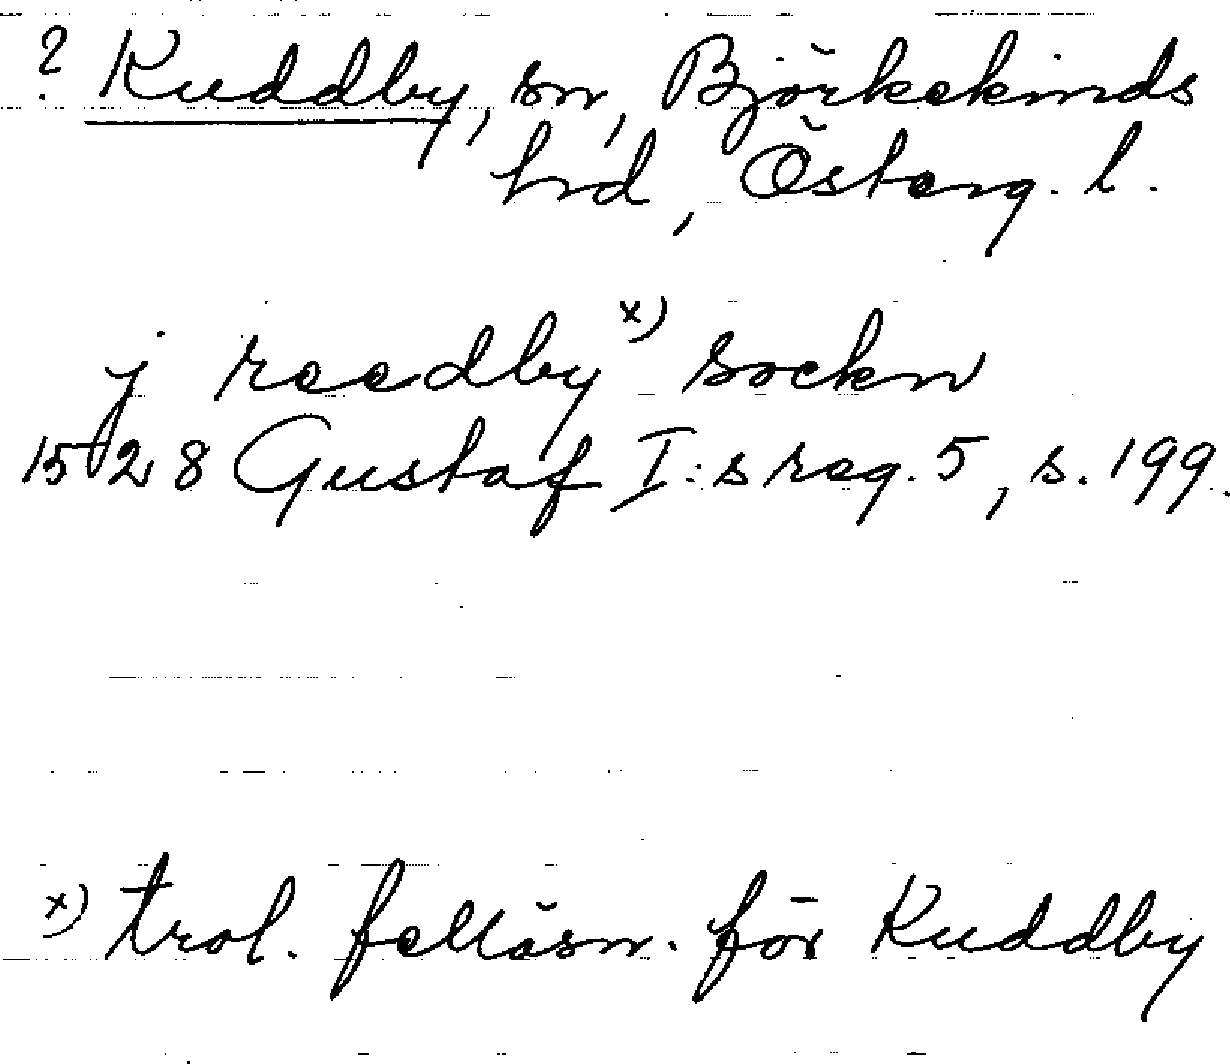 ? Kuddby, sn, Björkekinds
hrd, Österg. l.
j reedby x) sockn
1528 Gustaf I:s reg. 5, s. 199.
x) trol. felläsn. för Kuddby